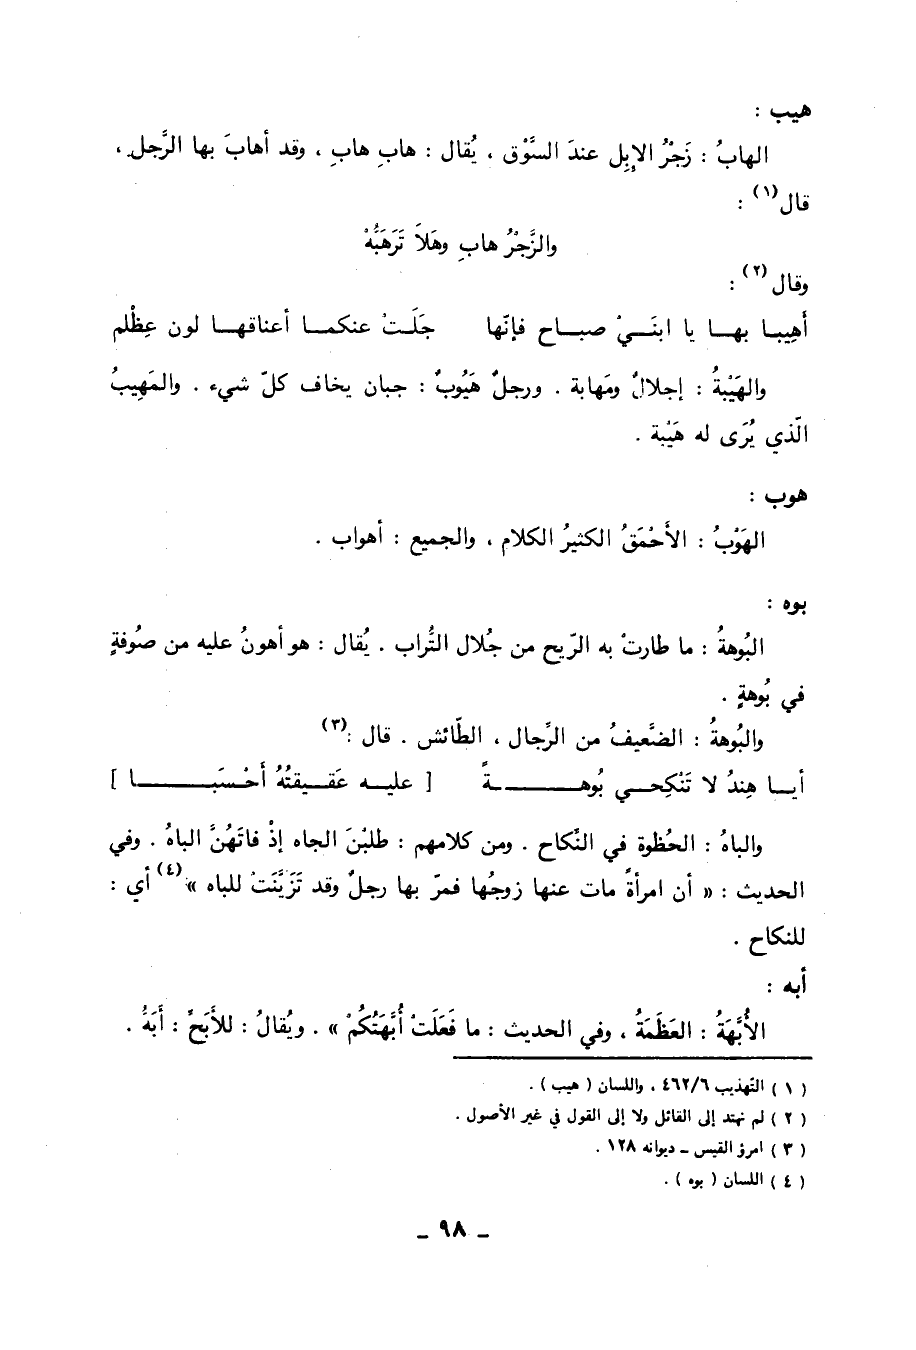 هيب :
الهابُ : زَجْرُ الإبِل عندَ السَّوْق ، يُقال : هابِ هابِ ، وقد أهابَ بها الرَّجل ،
قال(١) :
والزَّجْرُ هابِ وهَلاَ تَرَهَبُّهْ
وقال(٢) :
أَهِيبا بهــا يا ابنَــيْ صبــاح فإنّها جَلَــتْ عنكمــا أعناقهــا لون عِظْلم
والهَيْبةُ : إجلالٌ ومَهابة . ورجلٌ هَيُوبٌ : جبان يخاف كلّ شيء . والمَهِيبُ
الّذي يُرَى له هَيْبة .
هوب :
الهَوْبُ : الأَحْمَقُ الكثيرُ الكلام ، والجميع : أهواب .
بوه :
البُوهةُ : ما طارتْ به الرّيح من جُلال التُّراب . يُقال : هو أهونُ عليه من صُوفةٍ
في بُوهةٍ .
والبُوهةُ : الضَّعيفُ من الرِّجال ، الطّائش . قال :(٣)
أيــا هِندُ لا تَنْكِحــي بُوهــــــةً [ عليــه عَقــيقتُهُ أَحْــسَبَــــــا ]
والباهُ : الحُظوة في النِّكاح . ومن كلامهم : طلبْنَ الجاه إذْ فاتَهُنَّ الباهُ . وفي
الحديث : « أن امرأةً مات عنها زوجُها فمرّ بها رجلٌ وقد تَزَيَّنَتْ للباه »(٤) أي :
للنكاح .
أبه :
الأُبَّهَةُ : العَظَمَةُ ، وفي الحديث : ما فَعَلَتْ أُبَّهَتُكُمْ » . ويُقالُ : للأَبَحِّ : أَبَهُّ .
( ١ ) التّهذيب ٤٦٢/٦ ، واللسان ( هيب ) .
( ٢ ) لم نهتد إلى القائل ولا إلى القول في غير الأصول .
( ٣ ) امرؤ القيس ــ ديوانه ١٢٨ .
( ٤ ) اللسان ( بوه ) .
ــ ٩٨ ــ